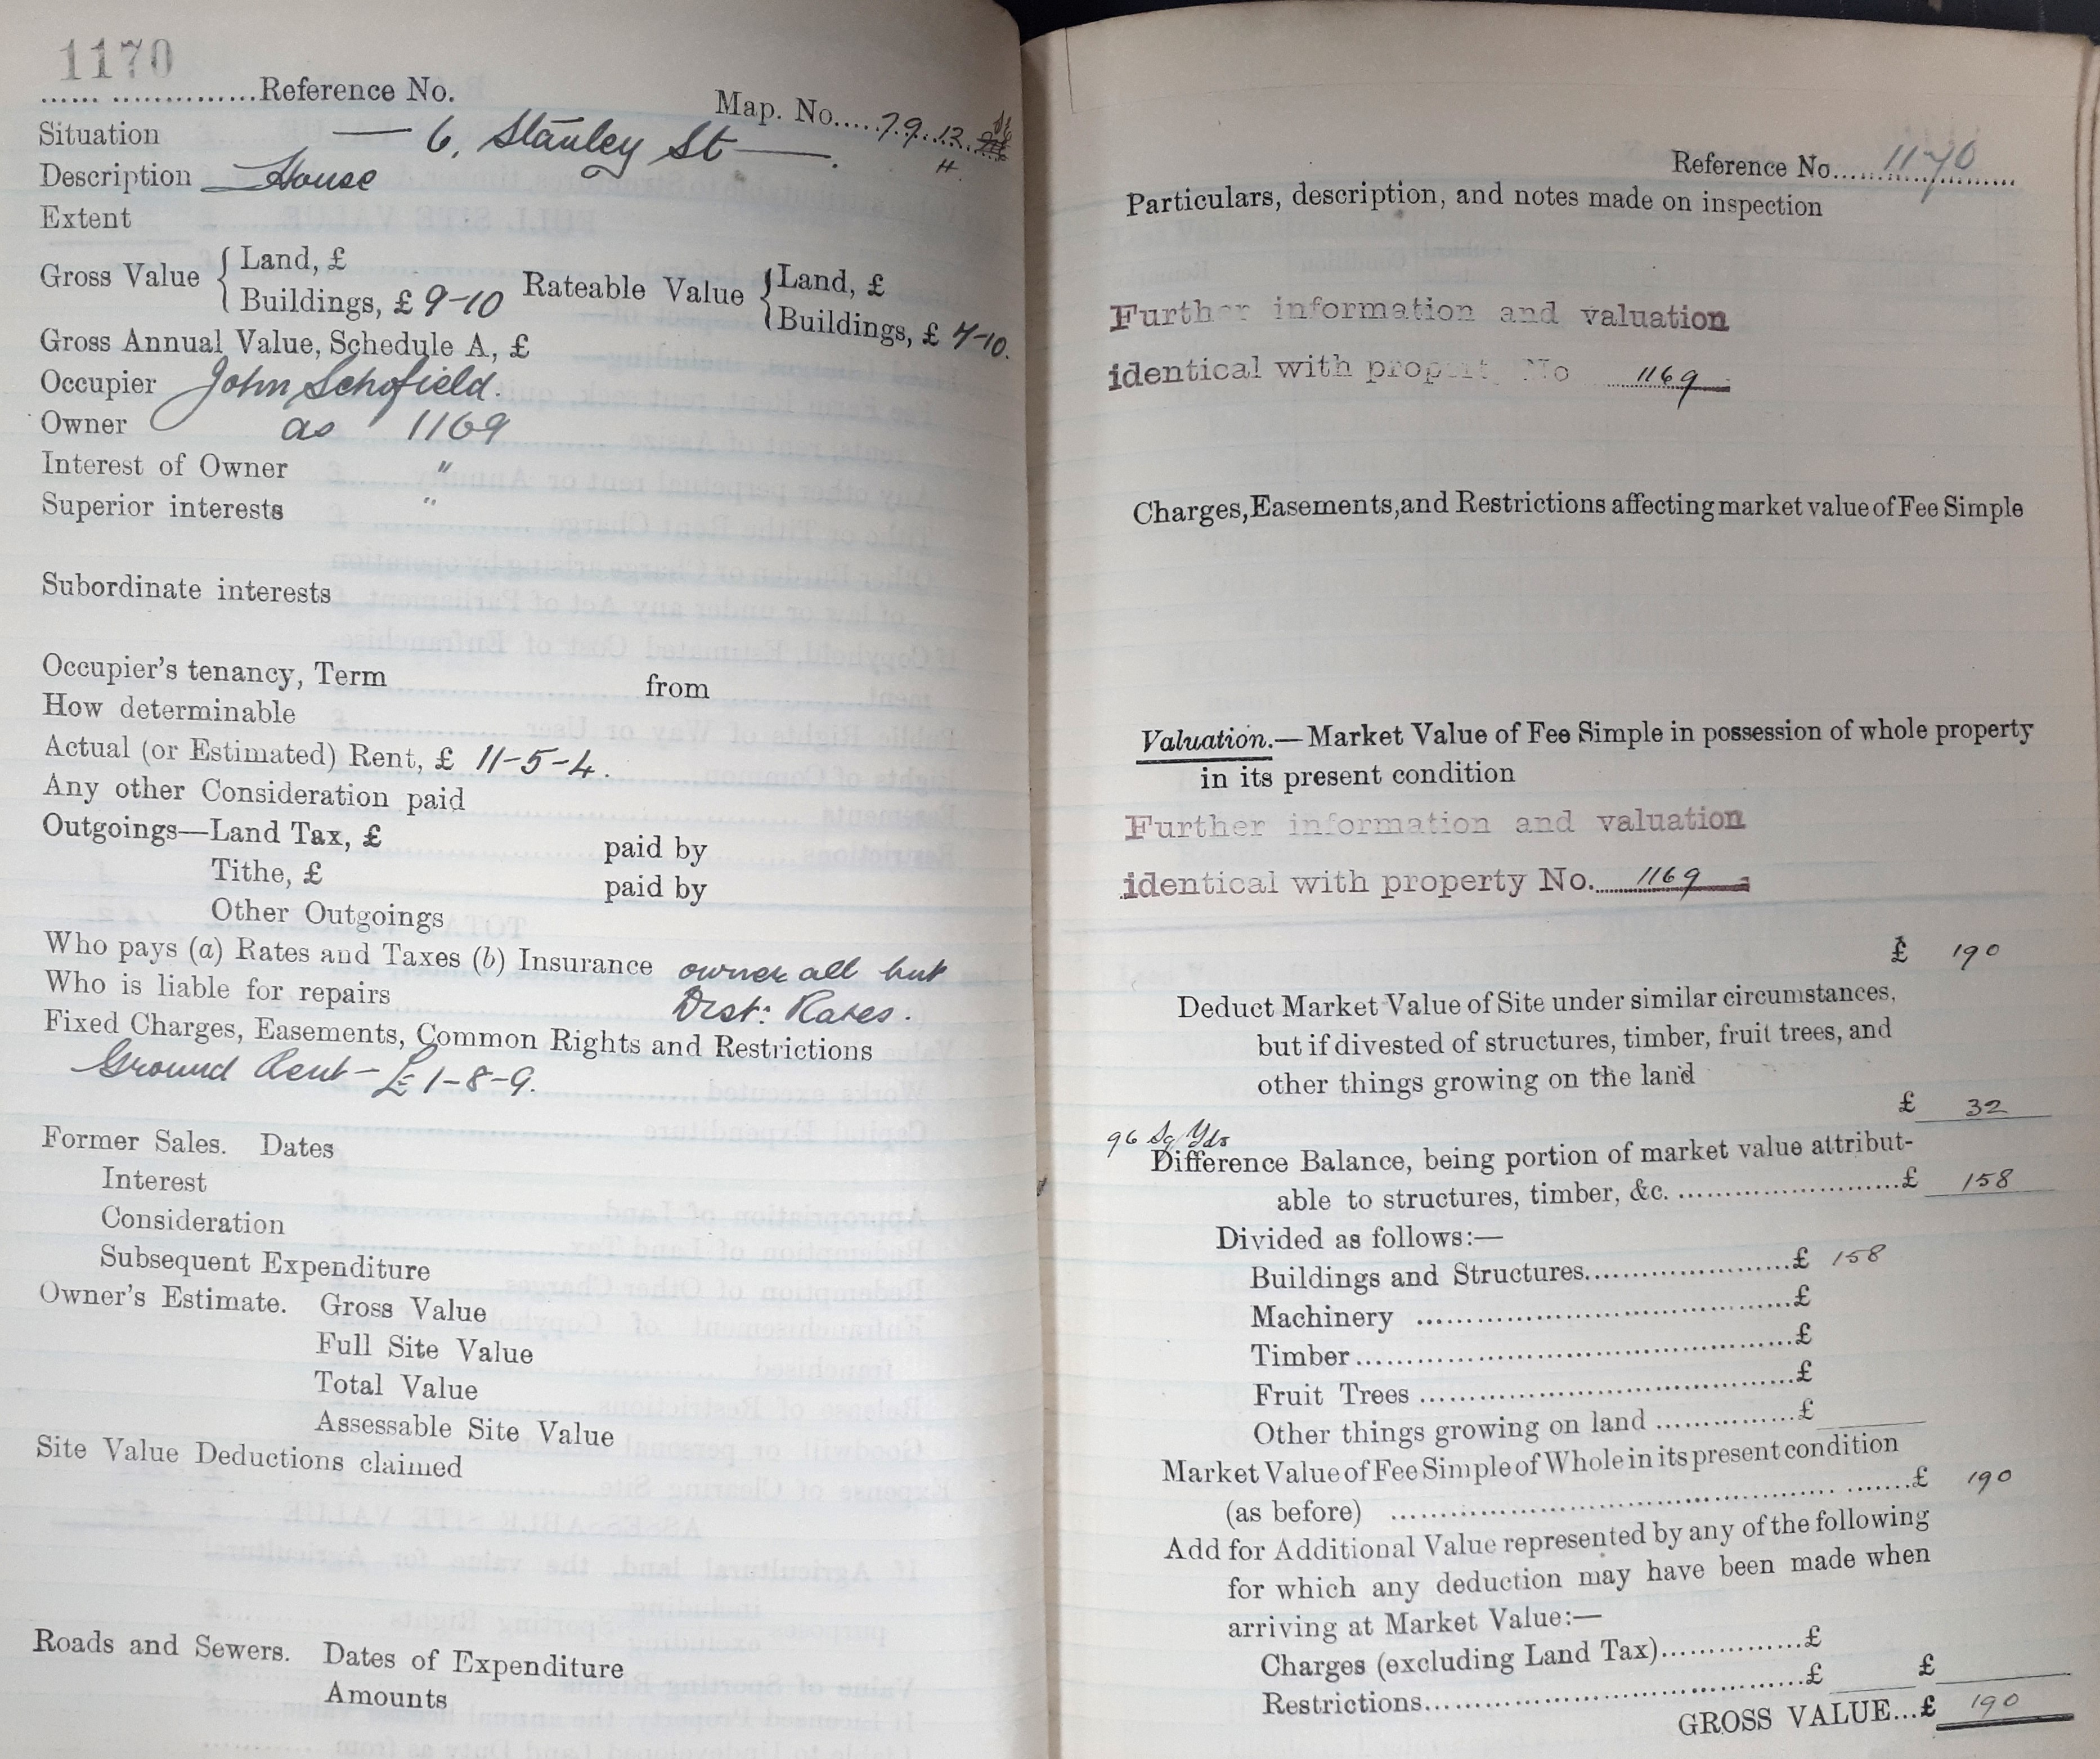 1170
...... ..............Reference No.
Map. No.....79.12
H.
Situation — 6, Stanley St —.
Description — House
Extent
Gross Value { Land, £
Buildings, £ 9-10
Rateable Value { Land, £
Buildings, £ 7-10.
Gross Annual Value, Schedule A, £
Occupier John Schofield.
Owner as 1169
Interest of Owner "
Superior interests "
Subordinate interests
Occupier's tenancy, Term from
How determinable
Actual (or Estimated) Rent, £ 11-5-4.
Any other Consideration paid
Outgoings—Land Tax, £ paid by
Tithe, £ paid by
Other Outgoings
Who pays (a) Rates and Taxes (b) Insurance owner all but
Who is liable for repairs Dist: Rates.
Fixed Charges, Easements, Common Rights and Restrictions
Ground Rent - £1-8-9.
Former Sales. Dates
Interest
Consideration
Subsequent Expenditure
Owner's Estimate. Gross Value
Full Site Value
Total Value
Assessable Site Value
Site Value Deductions claimed
Roads and Sewers. Dates of Expenditure
Amounts
Reference No. 1170
Particulars, description, and notes made on inspection
Further information and valuation
identical with property No 1169
Charges, Easements, and Restrictions affecting market value of Fee Simple
Valuation.—Market Value of Fee Simple in possession of whole property
in its present condition
Further information and valuation
identical with property No. 1169
£ 190
Deduct Market Value of Site under similar circumstances,
but if divested of structures, timber, fruit trees, and
other things growing on the land
£ 32
96 Sq Yds
Difference Balance, being portion of market value attribut-
able to structures, timber, &c. ........................£ 158
Divided as follows:—
Buildings and Structures......................£ 158
Machinery ..........................................£
Timber................................................£
Fruit Trees ..........................................£
Other things growing on land ...............£
Market Value of Fee Simple of Whole in its present condition
(as before) ................................................£ 190
Add for Additional Value represented by any of the following
for which any deduction may have been made when
arriving at Market Value:—
Charges (excluding Land Tax)...............£
Restrictions..........................................£ £
GROSS VALUE...£ 190